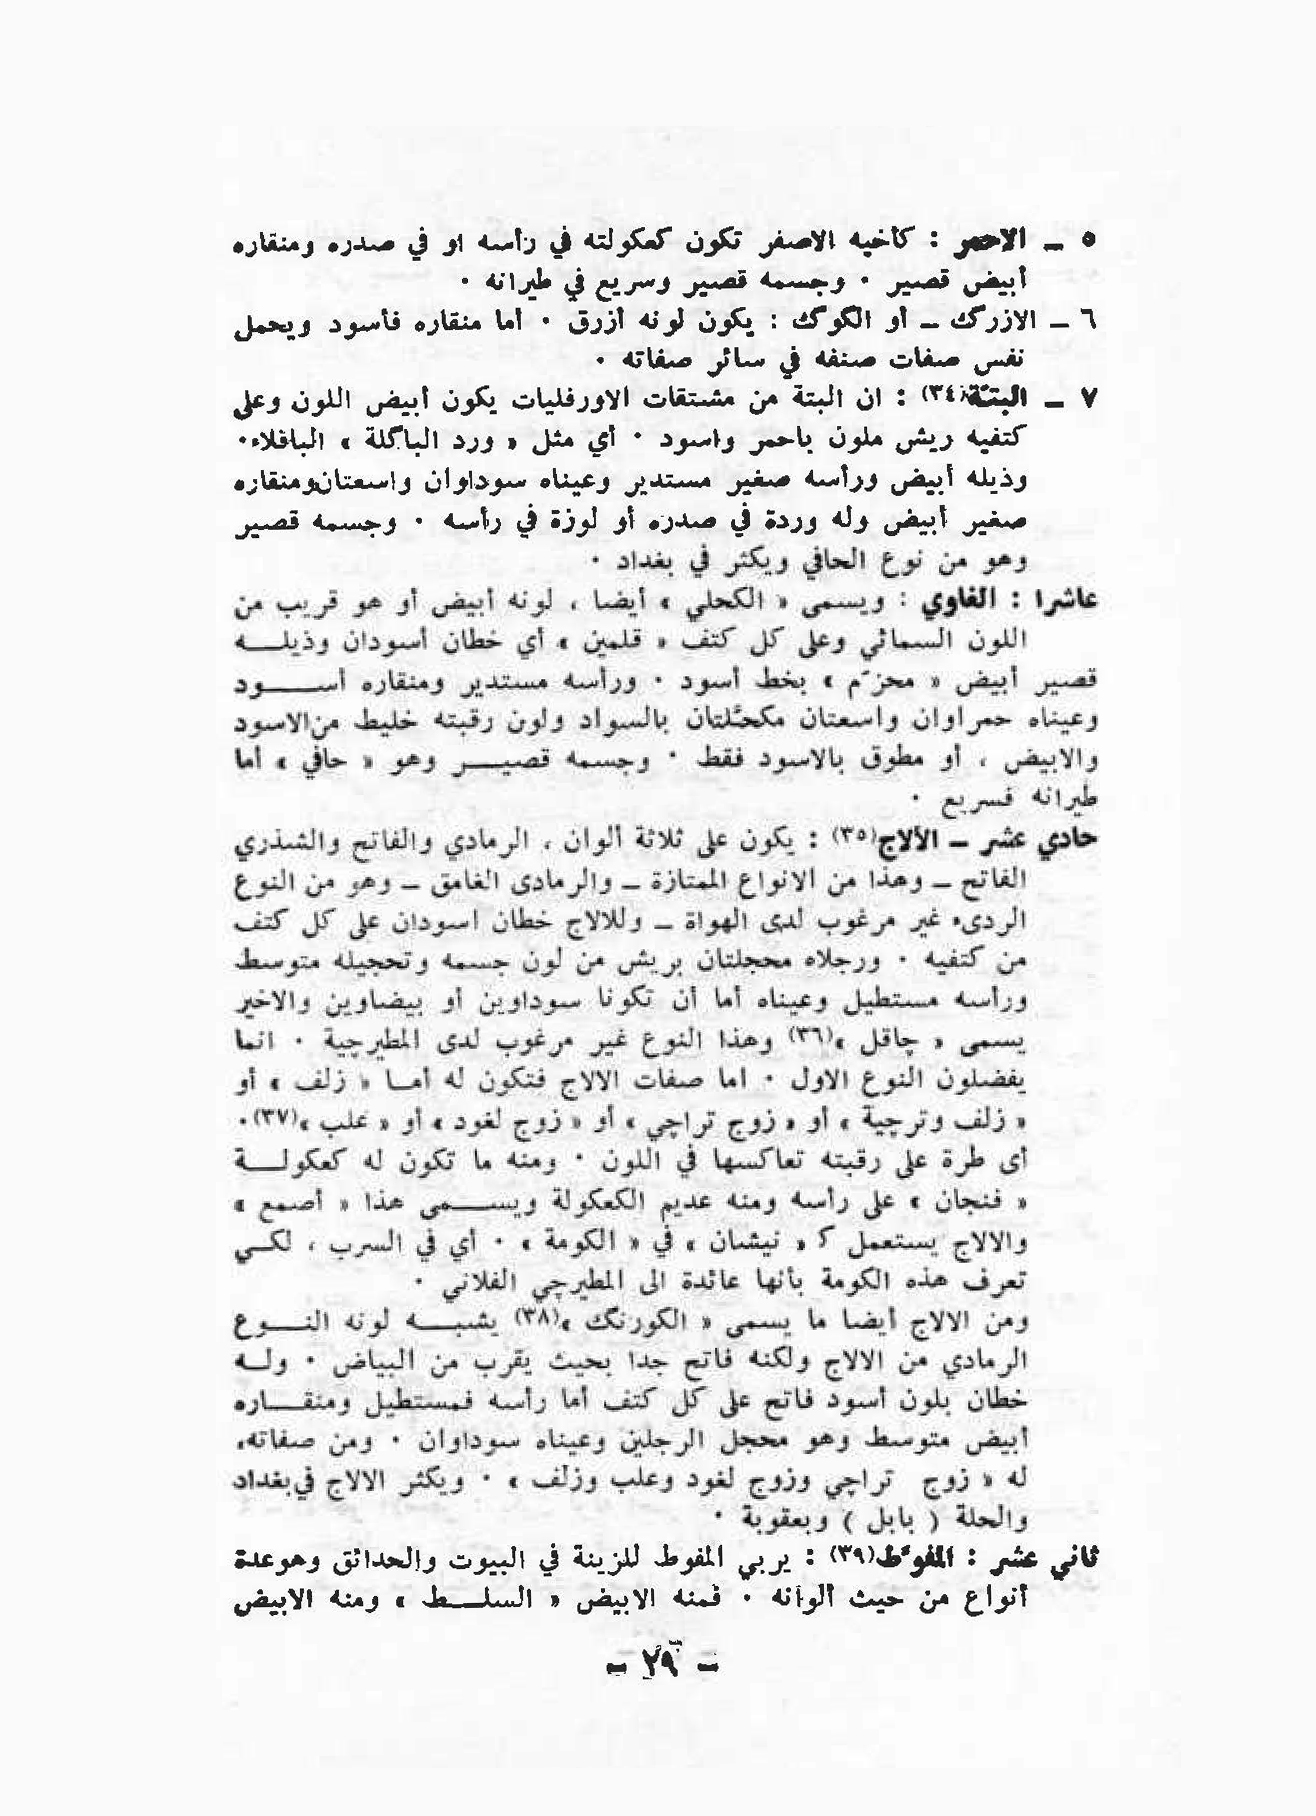 ٥ ــ الاحمر : كأخيه الاصفر تكون كعكولته في رأسه او في صدره ومنقاره
أبيض قصير · وجسمه قصير وسريع في طيرانه ·
٦ ــ الازرگ ــ أو الگوگ : يكون لونه أزرق · أما منقاره فأسود ويحمل
نفس صفات صنفه في سائر صفاته ·
٧ ــ البتّة(٣٤) : ان البتة من مشتقات الاورفليات يكون أبيض اللون وعلى
كتفيه ريش ملون باحمر واسود · أي مثل « ورد الباگلة » الباقلاء·
وذيله أبيض ورأسه صغير مستدير وعيناه سوداوان واسعتان ومنقاره
صغير أبيض وله وردة في صدره أو لوزة في رأسه · وجسمه قصير
وهو من نوع الحافي ويكثر في بغداد ·
عاشرا : الغاوي : ويسمى « الكحلي » أيضا ، لونه أبيض أو هو قريب من
اللون السمائي وعلى كل كتف « قلمين » أي خطان أسودان وذيلــه
قصير أبيض « محزّم » بخط أسود · ورأسه مستدير ومنقاره أســود
وعيناه حمراوان واسعتان مكحّلتان بالسواد ولون رقبته خليط من الاسود
والابيض ، أو مطوق بالاسود فقط · وجسمه قصيــر وهو « حافي » أما
طيرانه فسريع ·
حادي عشر ــ الألاج(٣٥) : يكون على ثلاثة ألوان ، الرمادي والفاتح والشذري
الفاتح ــ وهذا من الانواع الممتازة ــ والرمادى الغامق ــ وهو من النوع
الردىء غير مرغوب لدى الهواة ــ وللالاج خطان اسودان على كل كتف
من كتفيه · ورجلاه محجلتان بريش من لون جسمه وتحجيله متوسط
ورأسه مستطيل وعيناه أما أن تكونا سوداوين أو بيضاوين والاخير
يسمى « چاقل »(٣٦) وهذا النوع غير مرغوب لدى المطيرچية · انما
يفضلون النوع الاول · اما صفات الالاج فتكون له أمـا « زلف » أو
« زلف وترچية » أو « زوج تراچي » أو « زوج لغود » أو « علب »(٣٧)·
أى طرة على رقبته تعاكسها في اللون · ومنه ما تكون له كعكولــة
« فنجان » على رأسه ومنه عديم الكعكولة ويســمى هذا « أصمع »
والالاج يستعمل كـ « نيشان » في « الكومة » · أي في السرب ، لكـي
تعرف هذه الكومة بأنها عائدة الى المطيرچي الفلاني ·
ومن الالاج أيضا ما يسمى « الكورنگ »(٣٨) يشبــه لونه النــوع
الرمادي من الالاج ولكنه فاتح جدا بحيث يقرب من البياض · ولـه
خطان بلون أسود فاتح على كل كتف أما رأسه فمستطيل ومنقــاره
أبيض متوسط وهو محجل الرجلين وعيناه سوداوان · ومن صفاته،
له « زوج تراچي وزوج لغود وعلب وزلف » · ويكثر الالاج في بغداد
والحلة ( بابل ) وبعقوبة ·
ثاني عشر : المفوّط(٣٩) : يربي المفوط للزينة في البيوت والحدائق وهو عدة
أنواع من حيث ألوانه · فمنه الابيض « السلــط » ومنه الابيض
ــ ٢٩ ــ